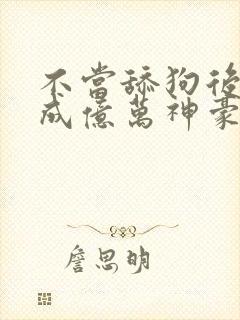 不當舔狗後
成億萬神豪
詹思明